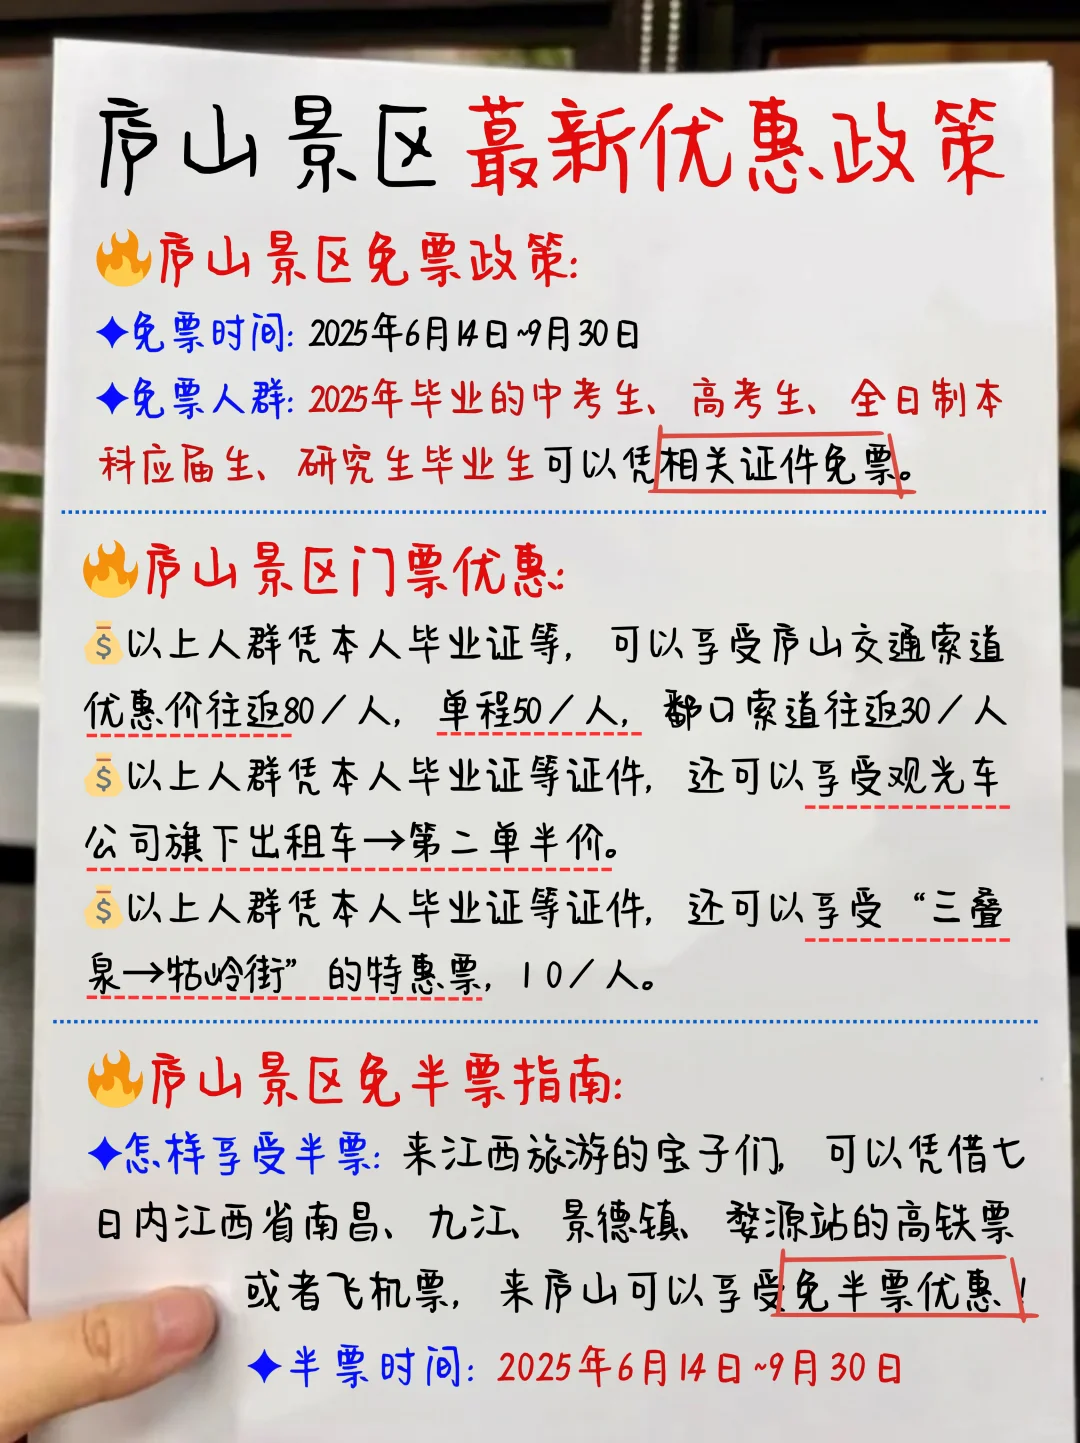 庐山景区蕞新优惠政策
庐山景区免票政策:
免票时间: 2025年6月14日~9月30日
免票人群: 2025年毕业的中考生、高考生、全日制本
科应届生、研究生毕业生可以凭相关证件免票。
庐山景区门票优惠:
以上人群凭本人毕业证等, 可以享受庐山交通索道
优惠价往返80/人, 单程50/人, 鄱口索道往返30/人
以上人群凭本人毕业证等证件, 还可以享受观光车
公司旗下出租车→第二单半价。
以上人群凭本人毕业证等证件, 还可以享受“三叠
泉→牯岭街”的特惠票, 10/人。
庐山景区免半票指南:
怎样享受半票: 来江西旅游的宝子们, 可以凭借七
日内江西省南昌、九江、景德镇、婺源站的高铁票
或者飞机票, 来庐山可以享受免半票优惠!
半票时间: 2025年6月14日~9月30日